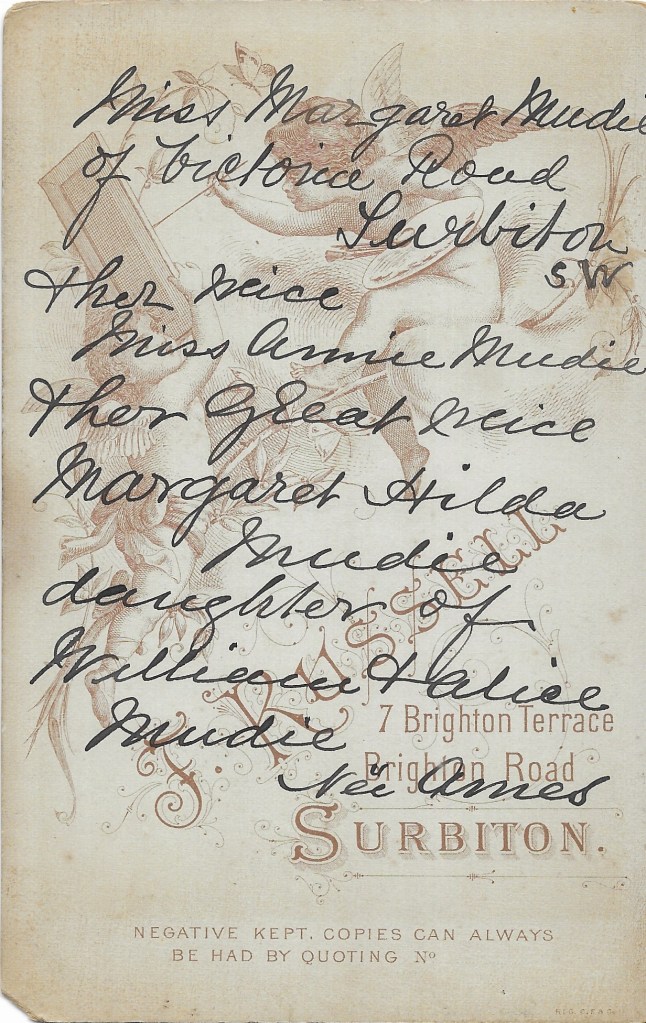 Miss Margaret Mudie
of Victoria Road
Surbiton
SW
& her neice
Miss Annie Mudie
& her Great neice
Margaret Hilda
Mudie
daughter of
William & Alice
Mudie
Neé Ames
J. RUSSELL
7 Brighton Terrace
Brighton Road
SURBITON.
NEGATIVE KEPT. COPIES CAN ALWAYS
BE HAD BY QUOTING No